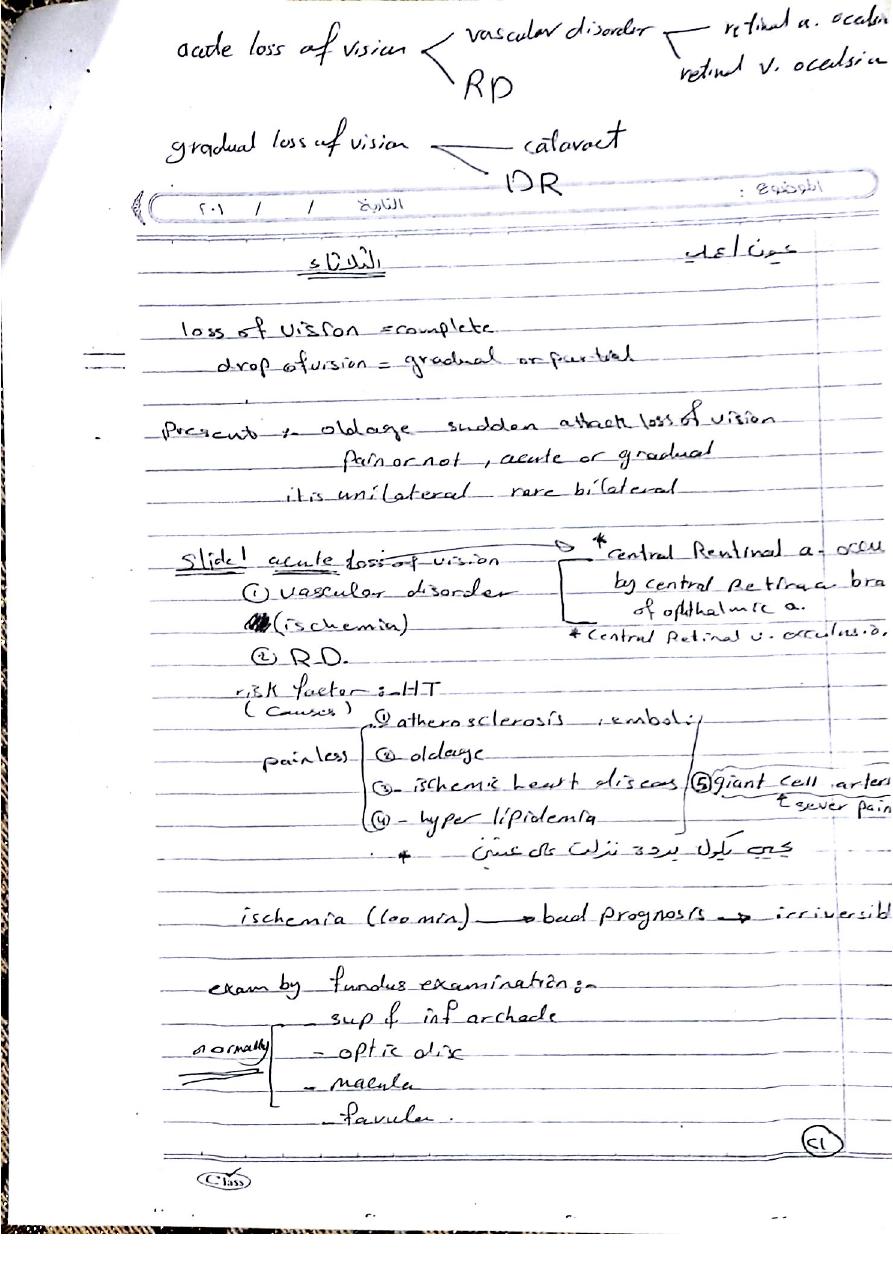 acute loss of vision < vascular disorder < retinal a. occulsin
retinal v. occulsion
RD
gradual loss of vision < cataract
DR
الموضوع : التاريخ / / ٢٠١
الثلاثاء
loss of vision = complete
drop of vision = gradual or partial
Present :- oldage sudden attack loss of vision
Pain or not , acute or gradual
it is unilateral rare bilateral
Slide 1 acute loss of vision → * central Rentinal a. occu
① vascular disorder by central Retina a. bra
(ischemia) of ophthalmic a.
* Central Retinal v. occulusio.
② R.D.
risk factor :- HT
(causes) ① atherosclerosis , emboli
painless ② oldage
③ - ischemic heart diseas ⑤ giant cell arter
sever pain
④ - hyper lipidemia
*
ischemia (100 min) → bad prognosis → irriversibl
exam by fundus examination :-
- sup & inf archade
normally - optic disc
- macula
- favula .
Class